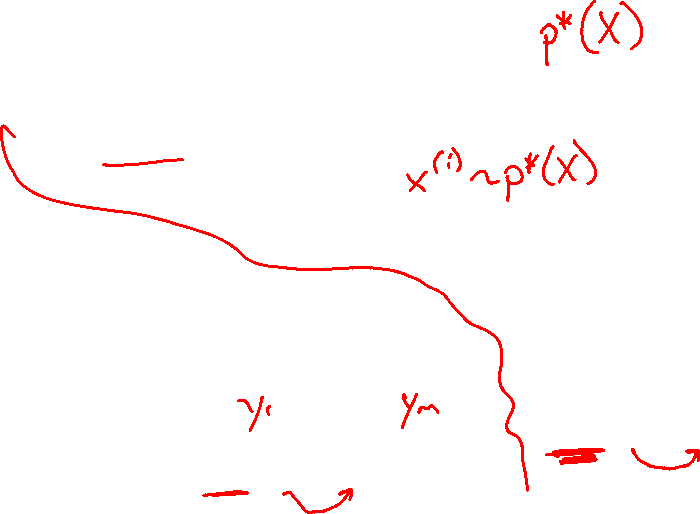 p*(X)
x^(i) ~ p*(X)
y₁ yₘ